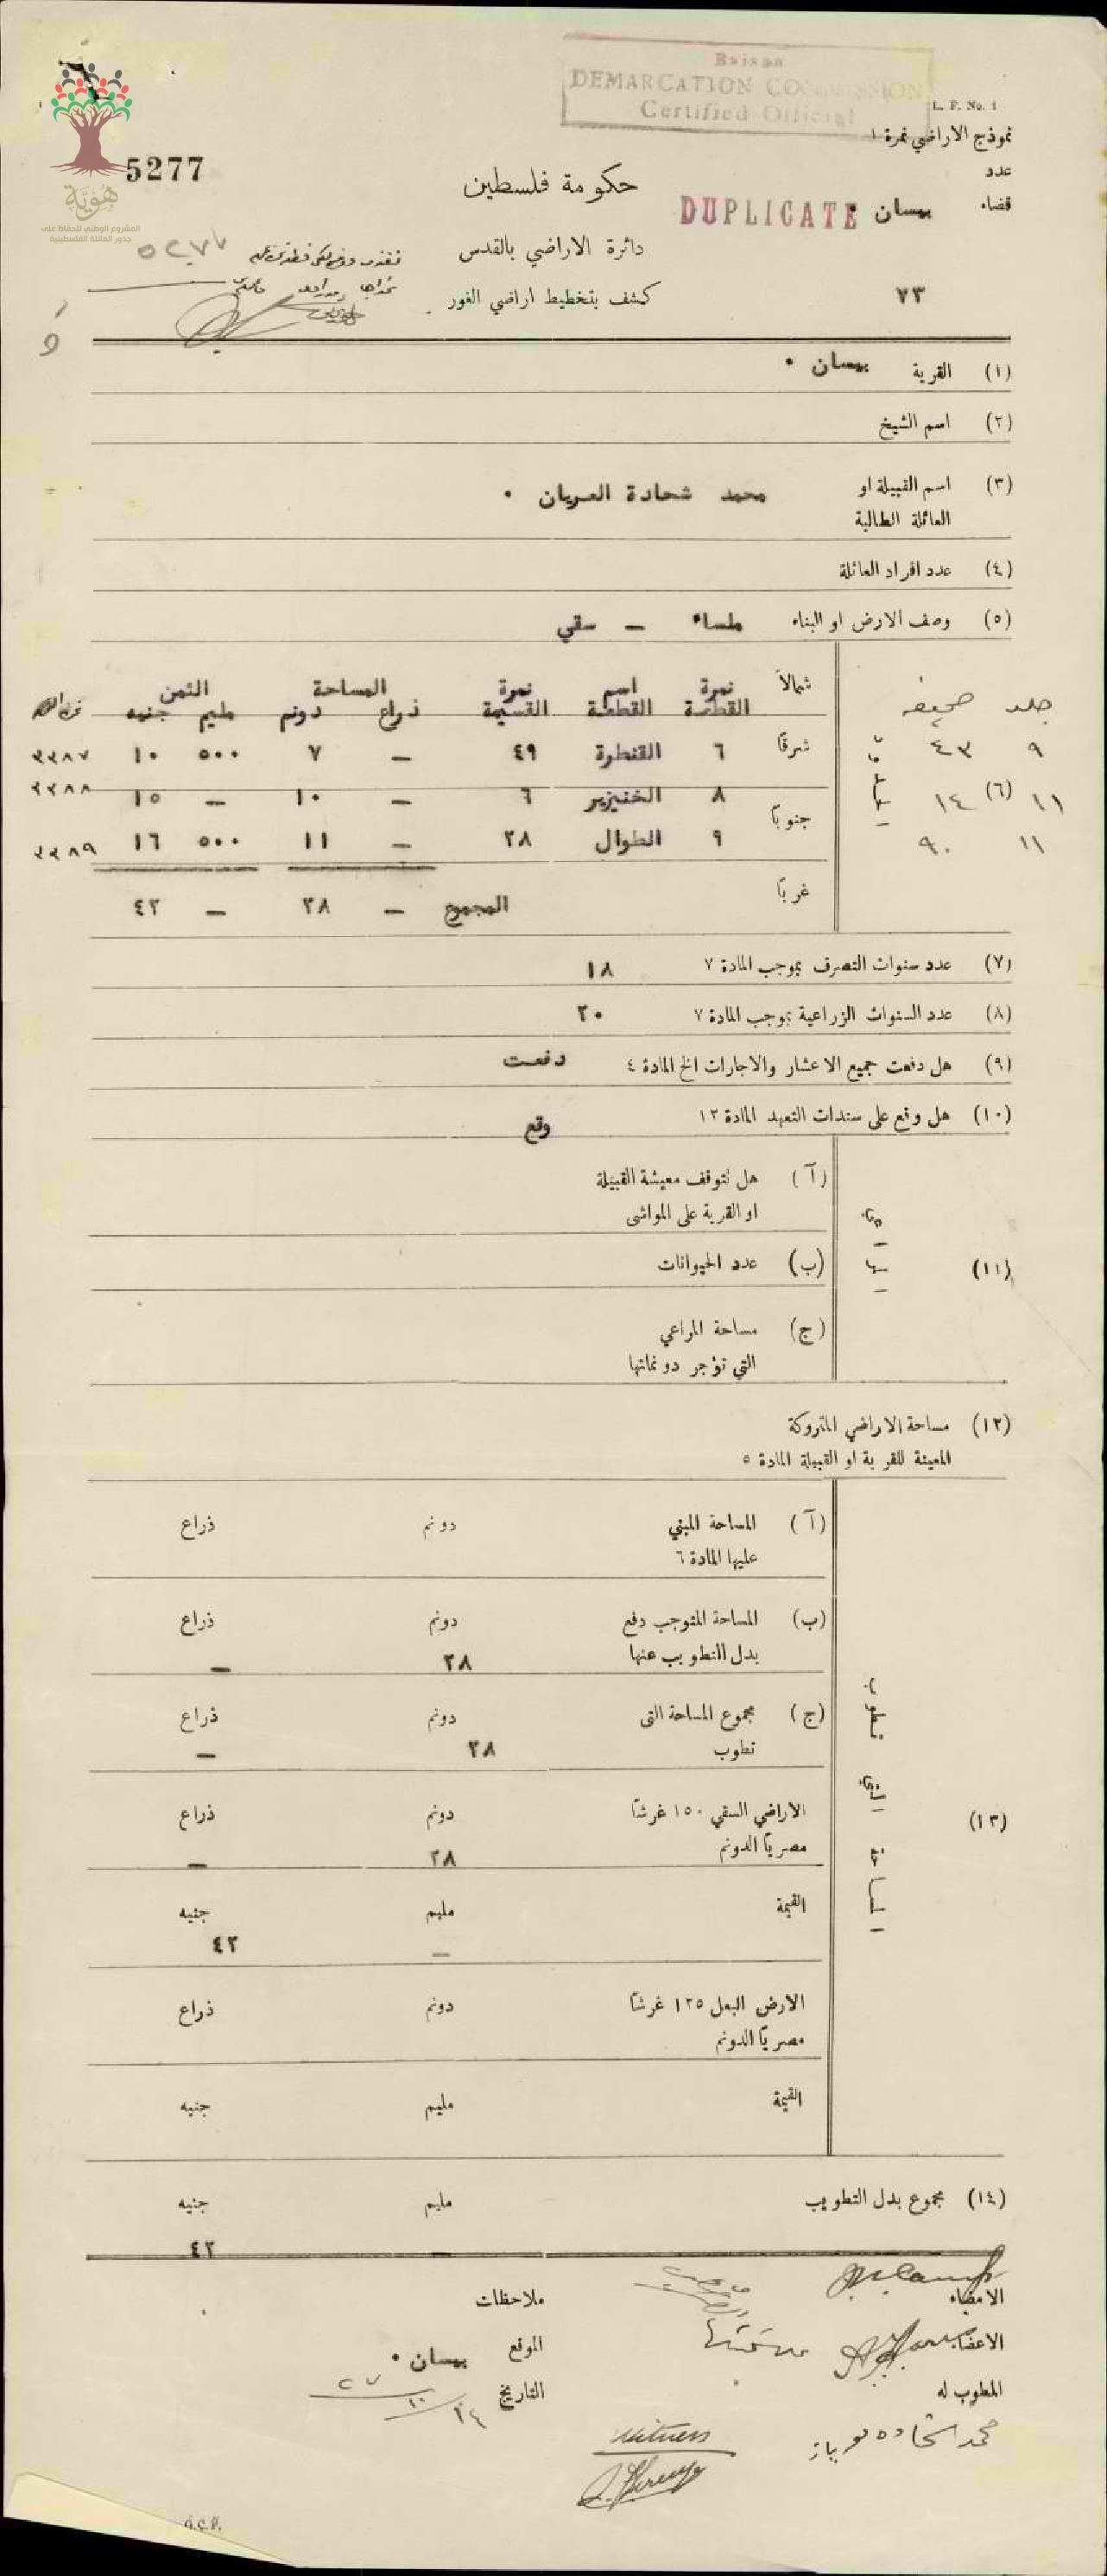 Baisan
DEMARCATION COMMISSION
Certified Official
L. F. No. 1
نموذج الاراضي نمرة ١
عدد
5277
حكومة فلسطين
قضاء بيسان
DUPLICATE
هُوِيَّة
المشروع الوطني للحفاظ على
جذور العائلة الفلسطينية
دائرة الاراضي بالقدس
٥٢٧٧
كشف بتخطيط اراضي الغور
٧٣
(١) القرية بيسان
(٢) اسم الشيخ
(٣) اسم القبيلة او
العائلة الطالبة
محمد شحادة العريان
(٤) عدد افراد العائلة
(٥) وصف الارض او البناء ملساء — سقي
جلد صحيفه
(٦) الحدود
شمالاً
شرقاً
جنوباً
غرباً
نمرة القطعة اسم القطعة نمرة القسيمة المساحة الثمن
ذراع دونم مليم جنيه
٩ ٤٣ ٦ القنطرة ٤٩ — ٧ ٥٠٠ ١٠ ٢٢٨٧
١١ ١٤ ٨ الخنيزير ٦ — ١٠ — ١٥ ٢٢٨٨
١١ ٩٠ ٩ الطوال ٢٨ — ١١ ٥٠٠ ١٦ ٢٢٨٩
المجموع — ٢٨ — ٤٢
(٧) عدد سنوات التصرف بموجب المادة ٧ ١٨
(٨) عدد السنوات الزراعية بموجب المادة ٧ ٢٠
(٩) هل دفعت جميع الاعشار والاجارات الخ المادة ٤ دفعت
(١٠) هل وقع على سندات التعهد المادة ١٣ وقع
(١١)
(آ) هل تتوقف معيشة القبيلة
او القرية على المواشى
(ب) عدد الحيوانات
(ج) مساحة المراعي
التي تؤجر دونماتها
(١٢) مساحة الاراضي المتروكة
المعينة للقرية او القبيلة المادة ٥
(١٣) المساحة التي تطوب
(آ) المساحة المبني دونم ذراع
عليها المادة ٦
(ب) المساحة المتوجب دفع دونم ذراع
بدل التطويب عنها ٢٨ —
(ج) مجموع المساحة التى دونم ذراع
تطوب ٢٨ —
الاراضي السقي ١٥٠ غرشاً دونم ذراع
مصرياً الدونم ٢٨ —
القيمة مليم جنيه
— ٤٢
الارض البعل ١٢٥ غرشاً دونم ذراع
مصرياً الدونم
القيمة مليم جنيه
(١٤) مجموع بدل التطويب مليم جنيه
— ٤٢
الامضاء
ملاحظات
الاعضاء
الموقع بيسان
المطوب له
التاريخ ٢٧/١٠/٢٤
محمد شحاده عريان
witness
G.C.P.